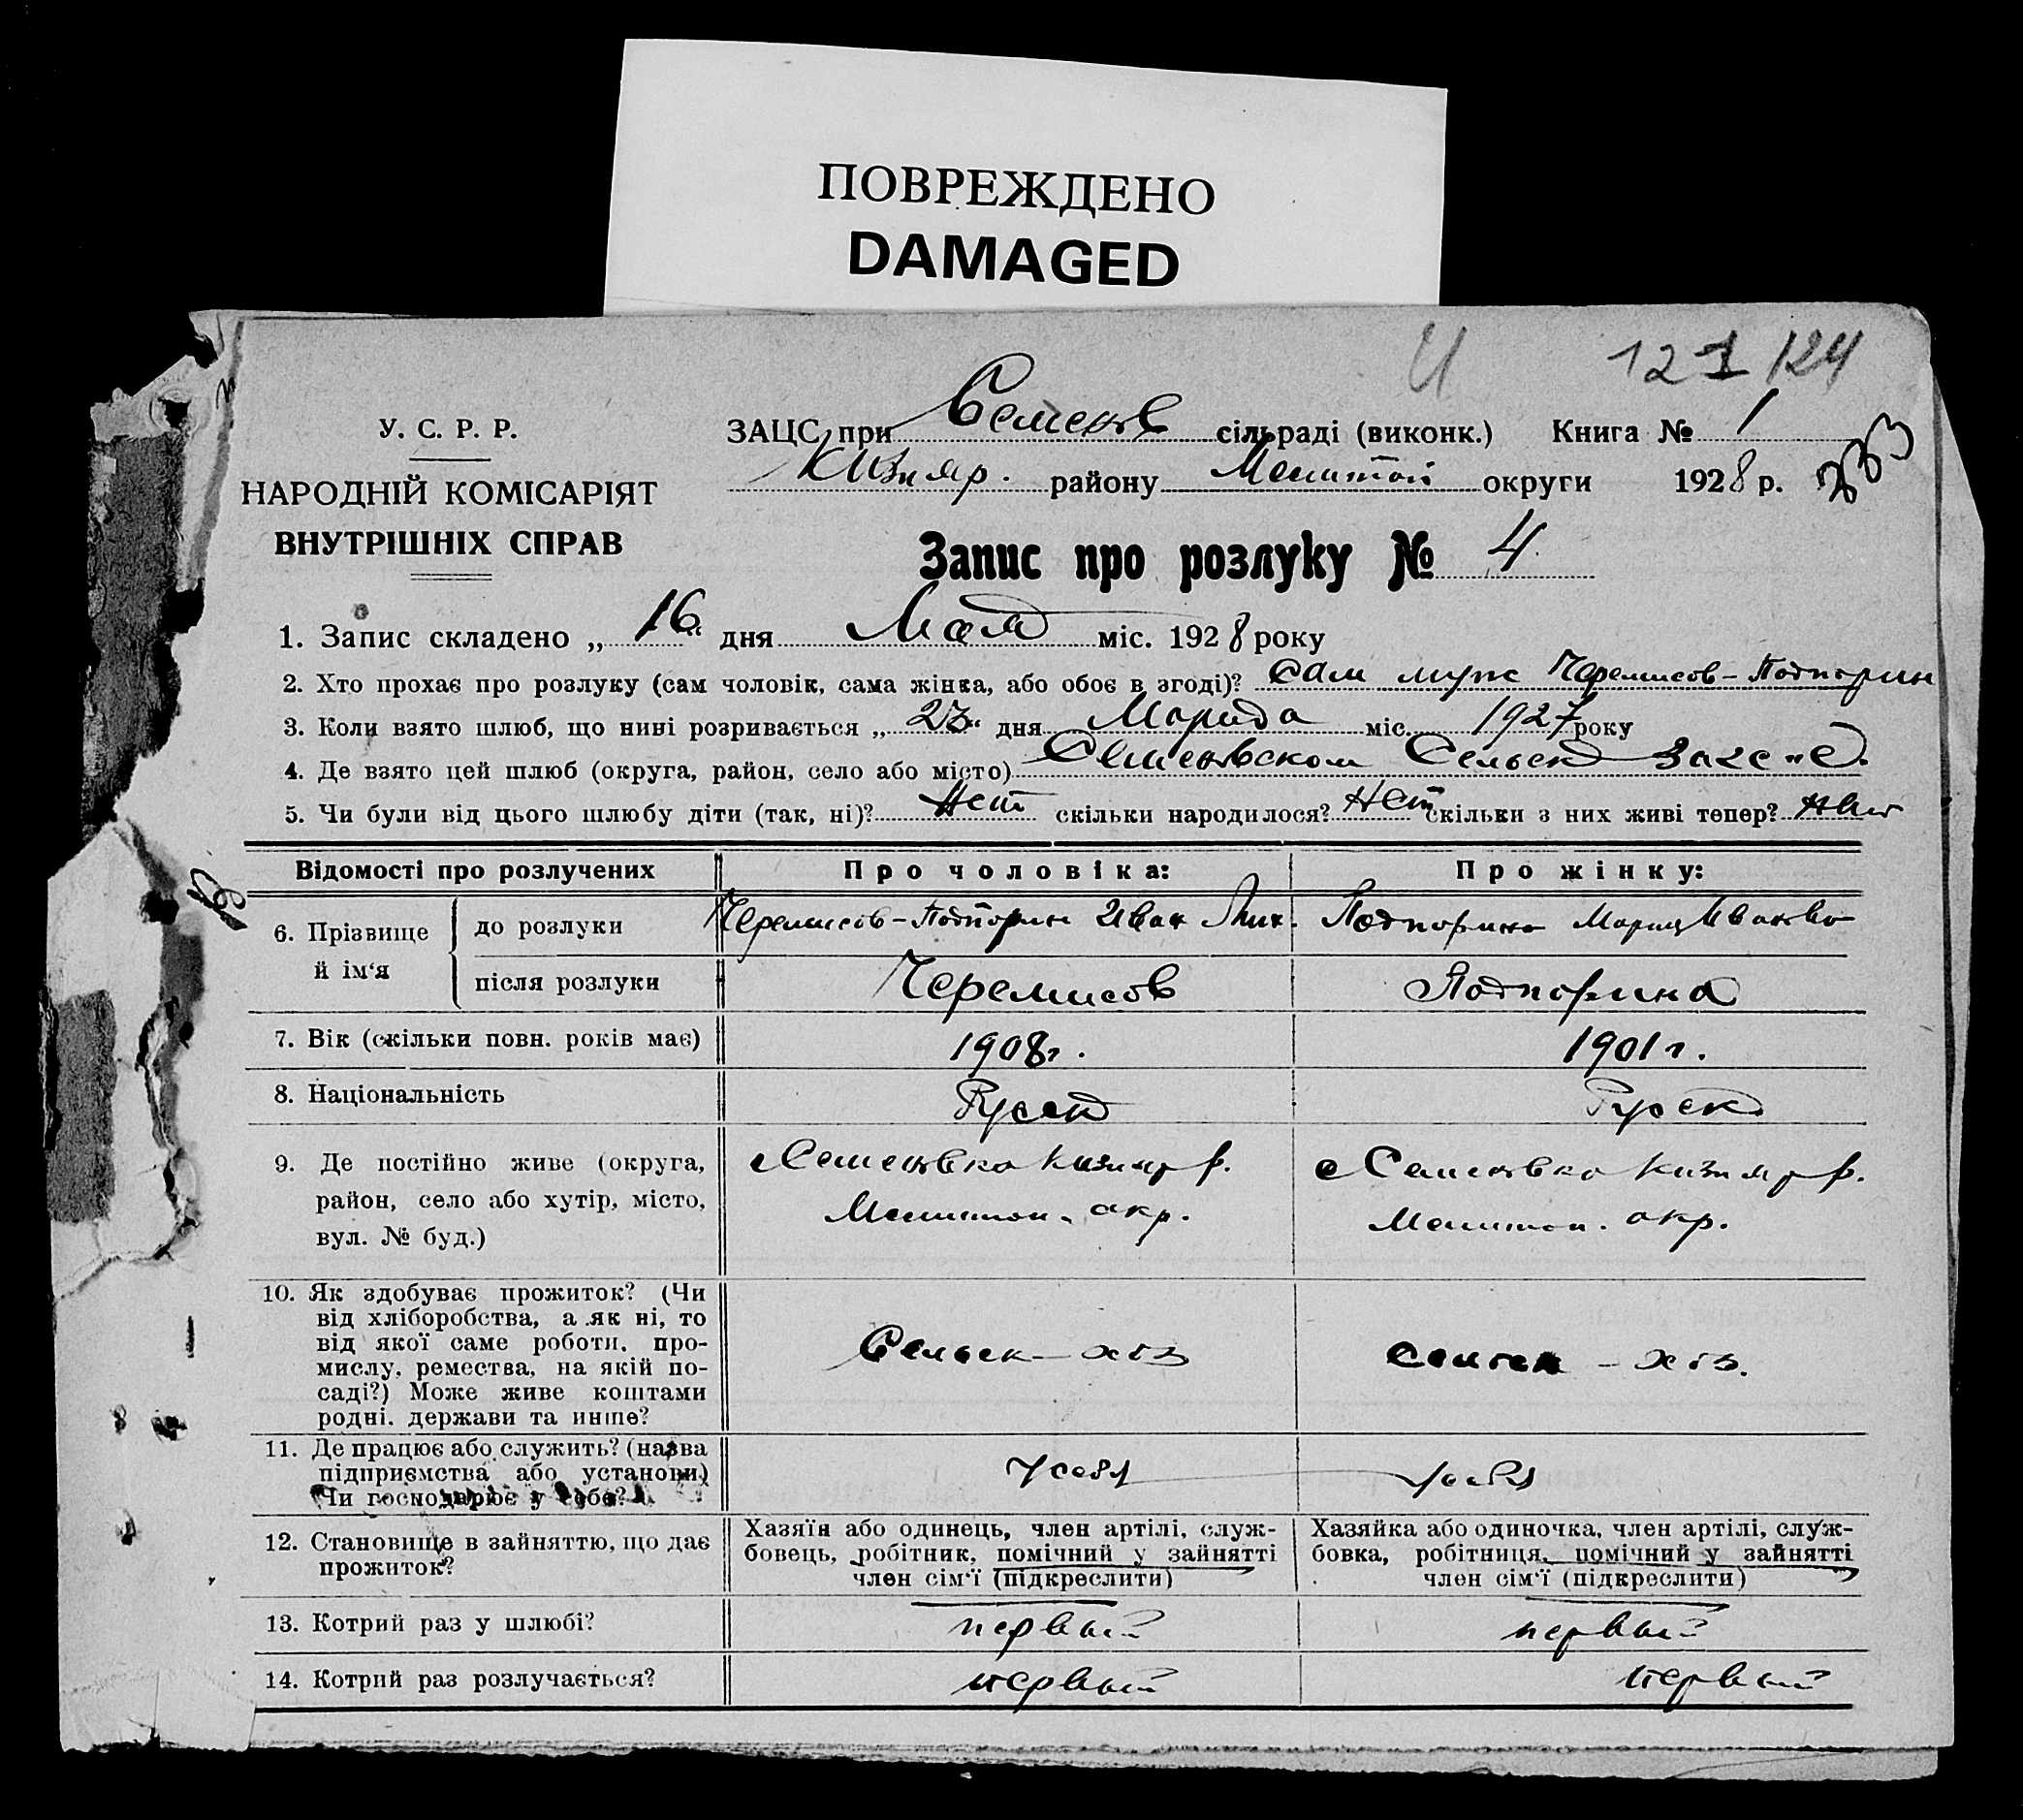 ПОВРЕЖДЕНО
DAMAGED
И 121 124
У. С. Р. Р.
НАРОДНІЙ КОМІСАРІЯТ
ВНУТРІШНІХ СПРАВ
ЗАЦС при Семенов сільраді (виконк.) Книга № 1
Кизияр. району Мелитой округи 1928 р. 283
Запис про розлуку № 4
1. Запис складено „ 16 “ дня Мая міс. 1928 року
2. Хто прохає про розлуку (сам чоловік, сама жінка, або обоє в згоді)? Сам муж Черемисов-Подпорин
3. Коли взято шлюб, що нині розривається „ 23 “ дня Марта міс. 1927 року
4. Де взято цей шлюб (округа, район, село або місто) Семеновском Сельск Загс-е
5. Чи були від цього шлюбу діти (так, ні)? Нет скільки народилося? Нет скільки з них живі тепер? нет
Відомості про розлучених Про чоловіка: Про жінку:
6. Прізвище й ім‘я до розлуки Черемисов-Подпорин Иван Мих. Подпорина Мария Ивановна
після розлуки Черемисов Подпорина
7. Вік (скільки повн. років має) 1908г. 1901г.
8. Національність Русск Русск
9. Де постійно живе (округа, район, село або хутір, місто, вул. № буд.) Семеновка Кизияр р. Мелитоп. окр. Семеновка Кизияр р. Мелитоп. окр.
10. Як здобуває прожиток? (Чи від хліборобства, а як ні, то від якої саме роботи, промислу, ремества, на якій посаді?) Може живе коштами родні, держави та инше? Сельск-хоз сельск-хоз.
11. Де працює або служить? (назва підприємства або установи) Чи господарює у себе? у себя у себя
12. Становище в зайняттю, що дає прожиток? Хазяїн або одинець, член артілі, службовець, робітник, помічний у зайнятті член сім‘ї (підкреслити) Хазяйка або одиночка, член артілі, службовка, робітниця, помічний у зайнятті член сім‘ї (підкреслити)
13. Котрий раз у шлюбі? первый первый
14. Котрий раз розлучається? первый первый